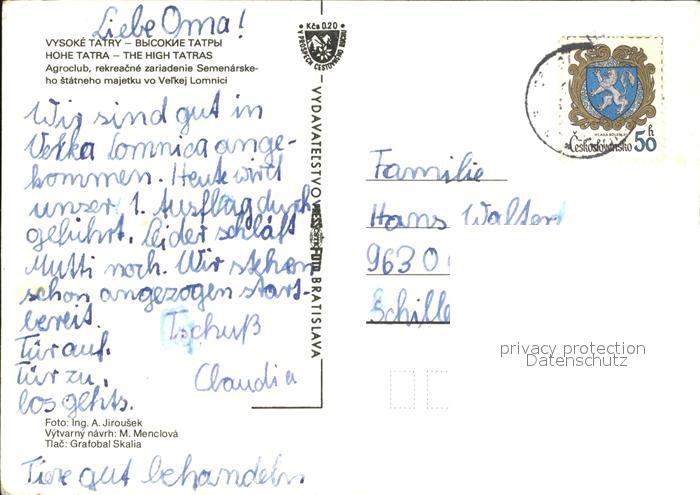 Liebe Oma!
VYSOKÉ TATRY – ВЫСОКИЕ ТАТРЫ
HOHE TATRA – THE HIGH TATRAS
Agroclub, rekreačné zariadenie Semenárske-
ho štátneho majetku vo Veľkej Lomnici
Wir sind gut in
Velka Lomnica ange-
kommen. Heute wird
unser 1. Ausflug durch
geführt. Leider schläft
Mutti noch. Wir stehen
schon angezogen start-
bereit.
Tür auf.
Tür zu.
los gehts.
Tschuß
Claudia
Foto: Ing. A. Jiroušek
Výtvarný návrh: M. Menclová
Tlač: Grafobal Skalia
Tiere gut behandeln
Kčs 0.20
V PROSPECH CESTOVNÉHO RUCHU
VYDAVATEĽSTVO
BRATISLAVA
Československo 50 h
Familie
Hans Walter
9630
Schille
privacy protection
Datenschutz